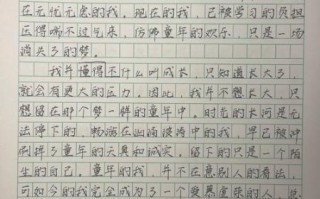 在无忧无虑的我。现在的我，已被学习的负担
压得喘不过气来，仿佛童年的欢乐，只是一场
消失了的梦。
我并懂得不什么叫成长，只知道长大了，
就会有更大的压力，因此，我并不想长大，只
想留在那个梦一样的童年中。时光的长河是无
法停下的，畅游在汹涌波涛中的我，早已被冲
刷掉了童年的天真和诚实，留下的只是一个陌
生的自己。童年的我，并不在意别人的看法，
可如今的我完全成为了一个爱慕虚荣的人，总